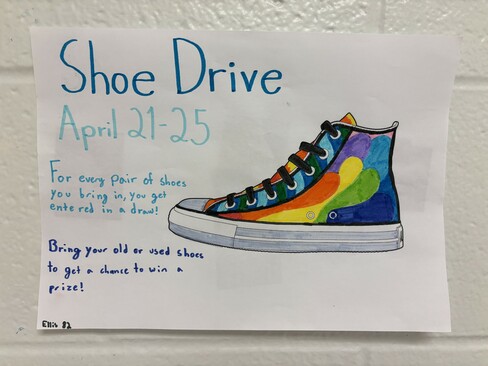 Shoe Drive
April 21-25
For every pair of shoes
you bring in, you get
entered in a draw!
Bring your old or used shoes
to get a chance to win a
prize!
Ellis 82